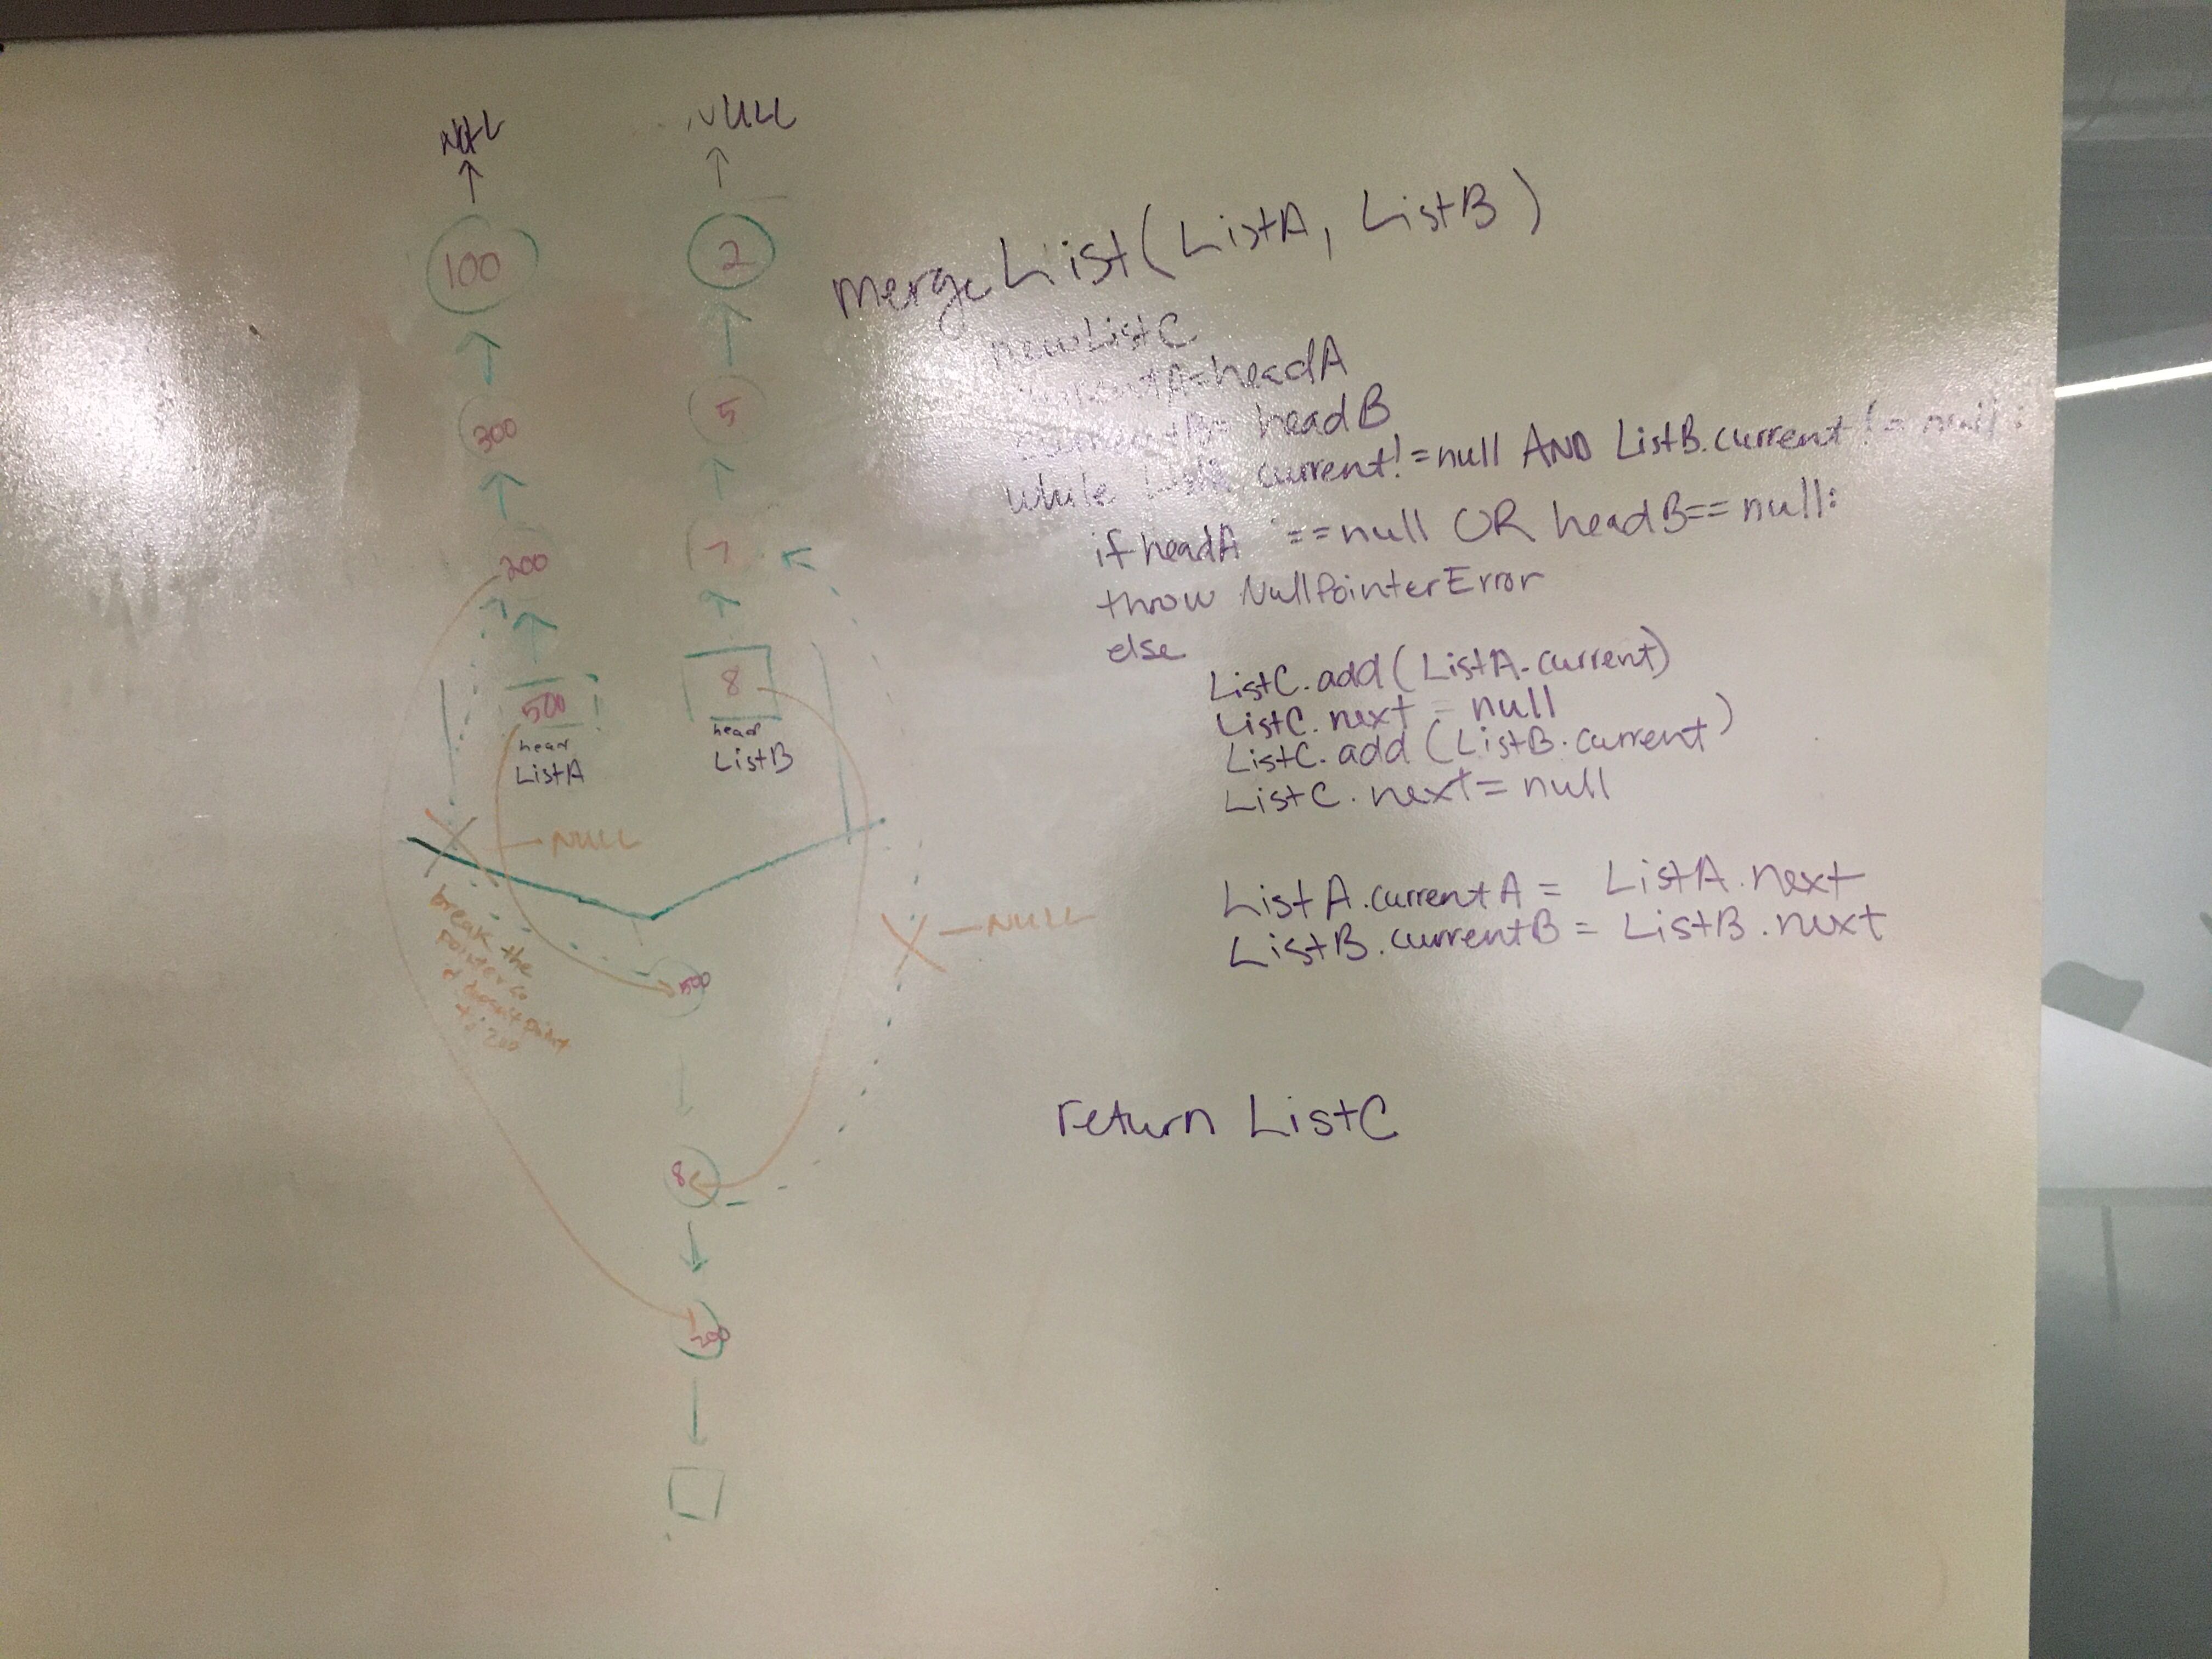 NULL
NULL
100
2
300
5
200
7
500
8
head
ListA
head
ListB
NULL
NULL
break the
pointer so
it doesn't point
to 200
500
8
200
mergeList(ListA, ListB)
newListC
currentA=headA
currentB= headB
while ListA current!=null AND ListB.current != null:
if headA ==null OR headB== null:
throw NullPointerError
else
ListC.add(ListA.current)
ListC.next = null
ListC.add(ListB.current)
ListC.next= null
ListA.currentA = ListA.next
ListB.currentB = ListB.next
return ListC